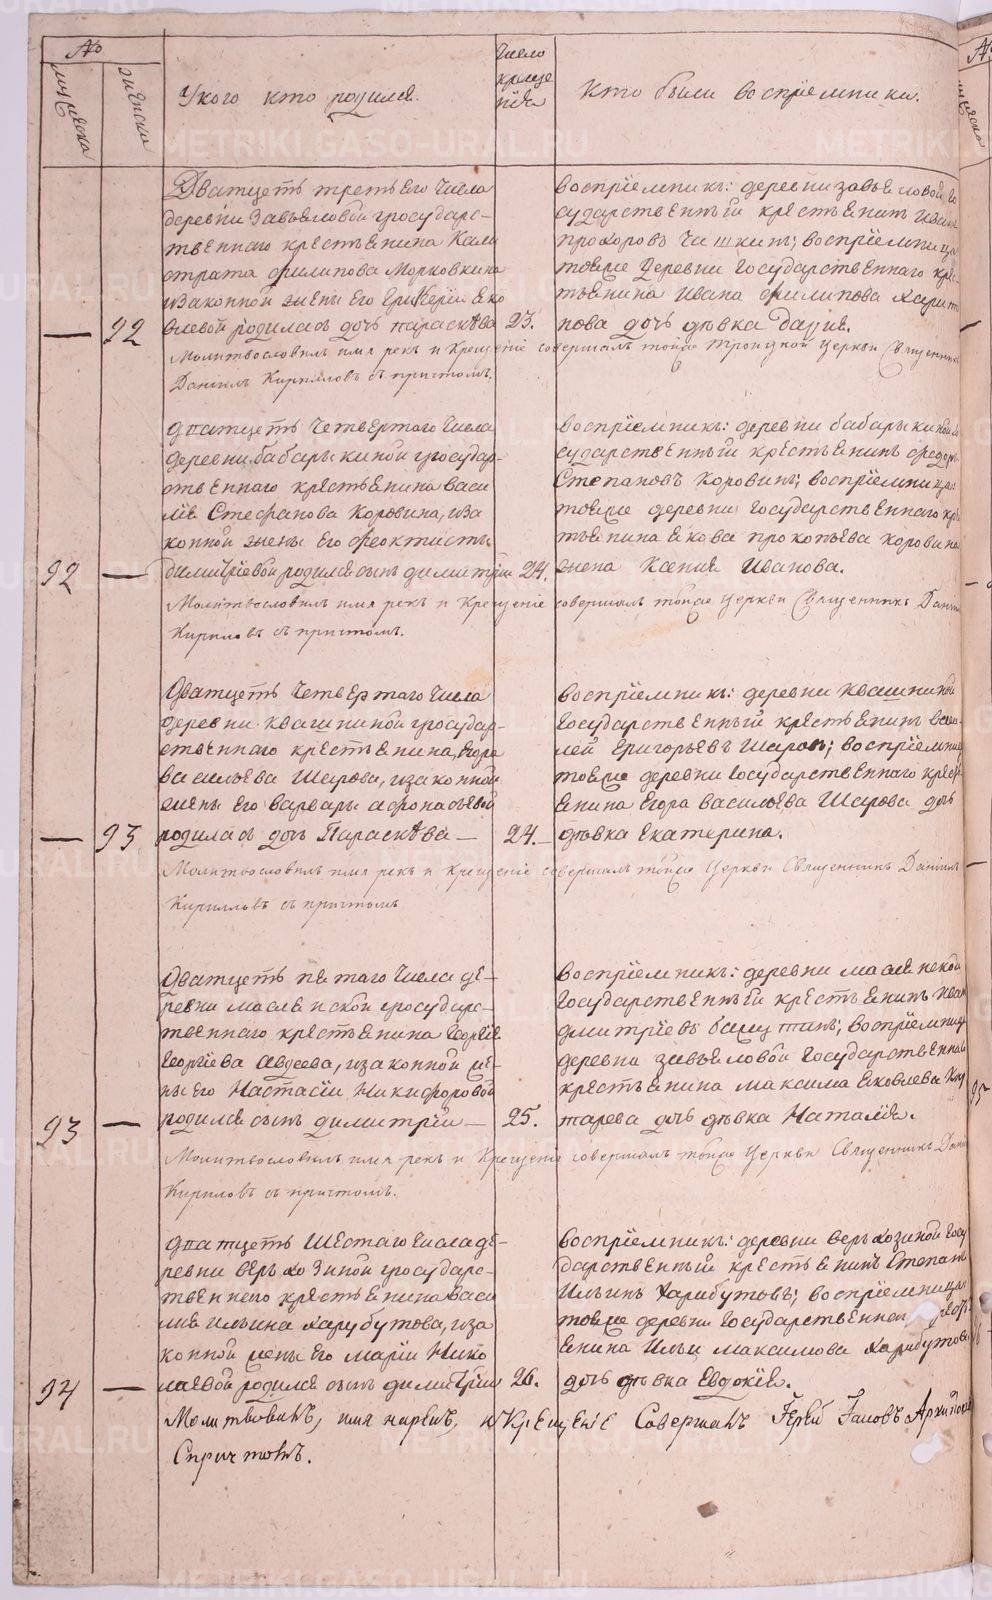 №
мужеска
женска
У кого кто родился.
число крещения
Кто были восприемники.
Дватцеть третьего числа
деревни Завьяловой государс-
твеннаго крестьянина Кали
страта Филипова Морковкина
иззаконной жены Его Гликерии Яко
влевой родилась дочь параскѣва
92
23.
восприемникъ: деревни завьяловой го
сударственный крестьянинъ Иванъ
прохоровъ Чашкинъ; восприемница
тояже деревни Государственнаго кре-
стьянина Ивана Филипова Харит
пова дочь дѣвка Дарья.
Молитвословилъ имя рекъ и Крещение совершалъ тойже троицкой Церкви Священникъ
Даниилъ Кирилловъ съ причтомъ.
дватцеть Четвертаго Числа
деревни бабарыкиной государ-
ственнаго крестьянина васи
лия Стефанова Коровина, изза
конной жены Его Феоктисты
димитриевой родился сынъ димитрий
92
24.
восприемникъ: деревни бабарыкиной го
сударственный крестьянинъ Федоръ
Степановъ Коровинъ; восприемница:
тояже деревни Государственнаго кре
стьянина Якова прокопьева Коровина
жена Ксения Иванова.
Молитвословилъ имя рекъ и Крещение совершалъ тойже Церкви Священникъ Данiил
Кириловъ съ причтомъ.
Дватцеть Четвертаго Числа
деревни Квашниной государ-
ственнаго крестьянина Егора
васильева Шарова, иззаконной
жены Его варвары афонасьевой
родилась дочь Параскѣва
93
24.
восприемникъ: деревни Квашниной
Государственный крестьянинъ васи
лей Григорьевъ Шаровъ; восприемница
тояже деревни Государственнаго крест
янина Егора васильева Шарова дочь
дѣвка Екатерина.
Молитвословилъ имя рекъ и Крещение совершалъ тойже Церкви Священникъ Даниилъ
Кирилловъ съ причтомъ
Дватцеть пятаго Числа де-
ревни маслянской государс-
твеннаго крестьянина Георгия
Георгиева Авдеева, иззаконной же-
ны Его Настасии Никифоровой
родился сынъ димитрий
93
25.
восприемникъ: деревни маслянской
Государственный крестьянинъ Иван
дмитриевъ башутинъ; восприемница
деревни завьяловой Государственнаго
крестьянина максима Яковлева
тарева дочь дѣвка Наталия.
Молитвословилъ имя рекъ и Крещение совершалъ тойже Церкви Священникъ Дани
Кириловъ съ причтомъ.
дватцеть Шестаго Числа де-
ревни верьхозиной государс-
твеннего крестьянина васи
лия Ильина Харубутова, изза
конной жены Его марии Нико
лаевой родился сынъ димитрий
94
26.
восприемникъ: деревни верьхозиной Госу
дарственный крестьянинъ Степанъ
Ильинъ Харибутовъ; восприемница:
тояже деревни Государственнаго крестья
янина Ильи максимова Харибутова
дочь дѣвка Евдокия.
Молитвовилъ, имя нарекъ, и Крещение Совершалъ Иерей Иаковъ
Спричтомъ.